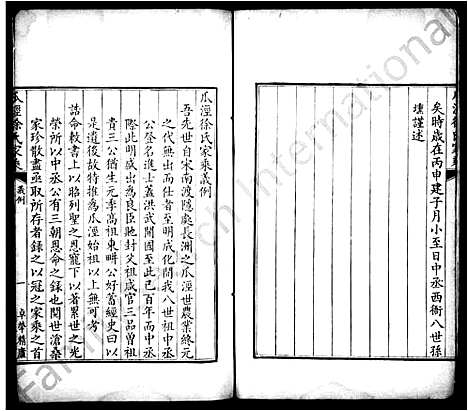 瓜涇徐氏家乘
矣時歲在丙申建子月小至日中丞西衙八世孫
壎謹述
瓜涇徐氏家乘義例
吾先世自宋南渡隱處長洲之瓜涇世農業終元
之代無出而仕者至明成化間我八世祖中丞
公登名進士蓋洪武開國至此已百年而中丞
際此明盛出為良臣貤封父祖咸官三品曾祖
貴三公猶生元季高祖東畊公好蓄經史曰以
是遺後故特推為瓜涇始祖以上無可考
誥命敕書上以昭列聖之恩寵下以著累世之光
榮所以中丞公有三朝恩命之錄也閱世滄桑
家珍散盡亟取所存者錄之以冠之家乘之首
瓜涇徐氏家乘
義例
一
卓犖精廬
FamilySearch International